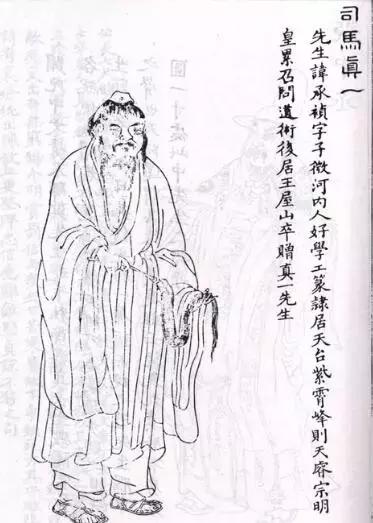 司馬眞一
先生諱承禎字子微河内人好學工篆隸居天台紫霄峰則天睿宗明
皇累召問道術後居王屋山卒贈真一先生